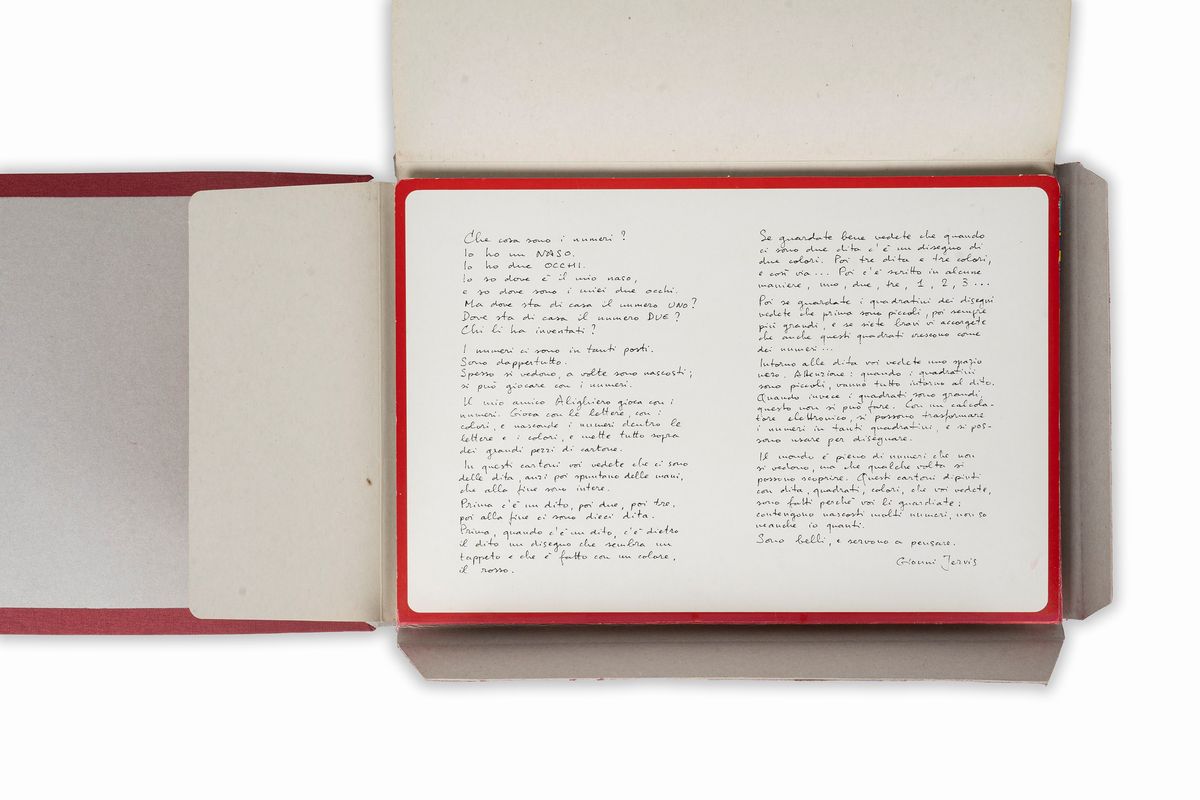 Che cosa sono i numeri?
Io ho un NASO.
Io ho due OCCHI.
Io so dove è il mio naso,
e so dove sono i miei due occhi.
Ma dove sta di casa il numero UNO?
Dove sta di casa il numero DUE?
Chi li ha inventati?
I numeri ci sono in tanti posti.
Sono dappertutto.
Spesso si vedono, a volte sono nascosti;
si può giocare con i numeri.
Il mio amico Alighiero gioca con i
numeri. Gioca con le lettere, con i
colori, e nasconde i numeri dentro le
lettere e i colori, e mette tutto sopra
dei grandi pezzi di cartone.
In questi cartoni voi vedete che ci sono
delle dita, anzi poi spuntano delle mani,
che alla fine sono intere.
Prima c'è un dito, poi due, poi tre.
poi alla fine ci sono dieci dita.
Prima, quando c'è un dito, c'è dietro
il dito un disegno che sembra un
tappeto e che è fatto con un colore,
il rosso.
Se guardate bene vedete che quando
ci sono due dita c'è un disegno di
due colori. Poi tre dita e tre colori,
e così via... Poi c'è scritto in alcune
maniere, uno, due, tre, 1, 2, 3...
Poi se guardate i quadratini dei disegni
vedete che prima sono piccoli, poi sempre
più grandi, e se siete bravi vi accorgete
che anche questi quadrati crescono come
dei numeri...
Intorno alle dita voi vedete uno spazio
nero. Attenzione: quando i quadratini
sono piccoli, vanno tutto intorno al dito.
Quando invece i quadrati sono grandi,
questo non si può fare. Con un calcola-
tore elettronico, si possono trasformare
i numeri in tanti quadratini, e si pos-
sono usare per disegnare.
Il mondo è pieno di numeri che non
si vedono, ma che qualche volta si
possono scoprire. Questi cartoni dipinti
con dita, quadrati, colori, che voi vedete,
sono fatti perché voi li guardiate:
contengono nascosti molti numeri, non so
neanche io quanti.
Sono belli, e servono a pensare.
Gianni Jervis